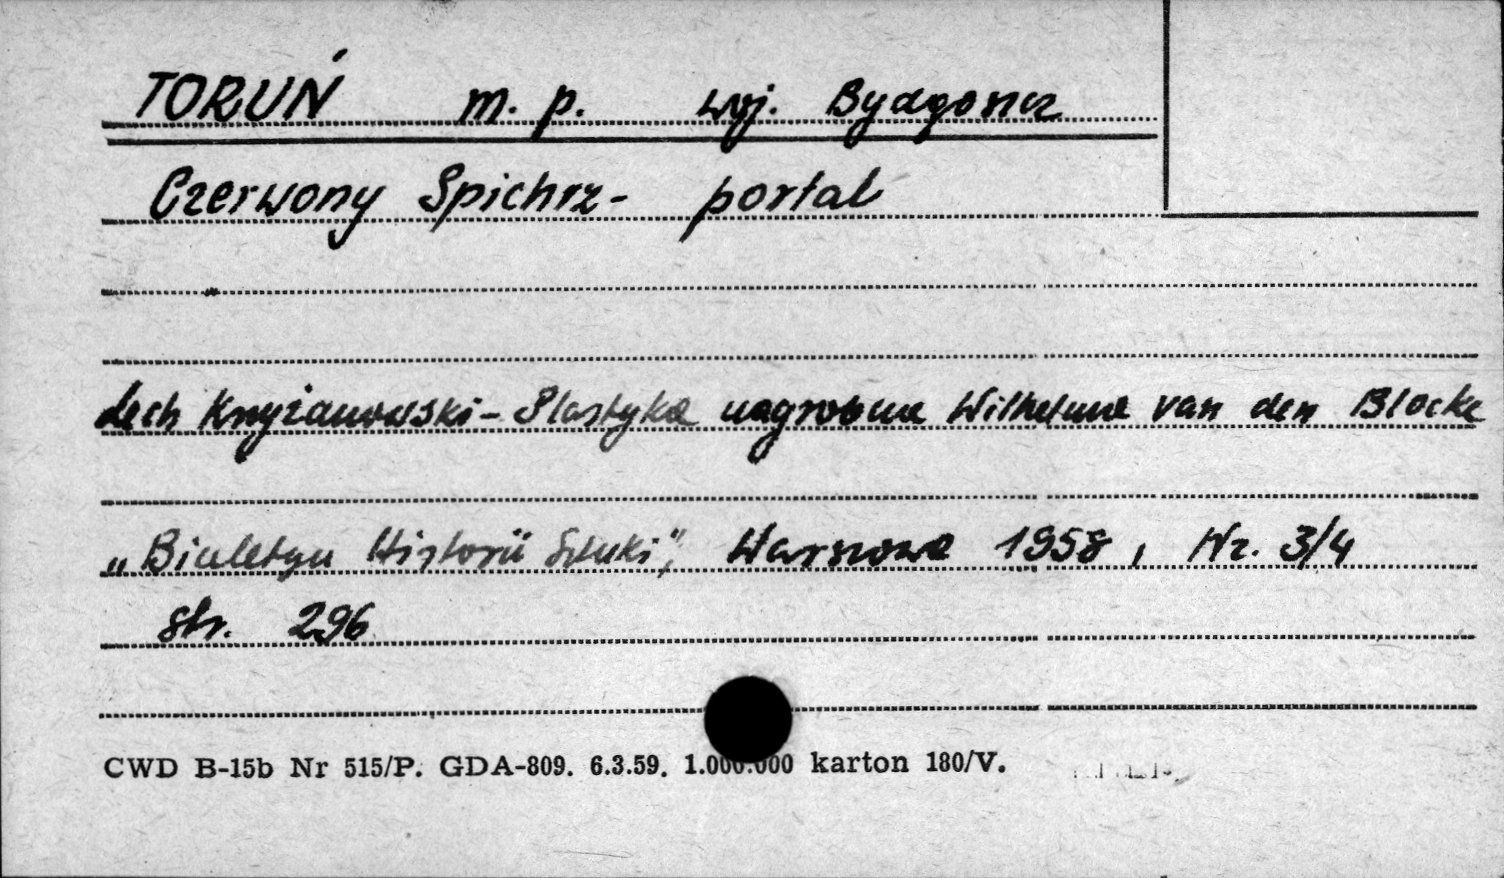 TORUŃ m. p. woj. Bydgoszcz
Czerwony Spichrz - portal
Lech Krzyżanowski - Plastyka nagrobna Wilhelma van den Blocke
„Biuletyn Historii Sztuki", Warszawa 1958, Nr. 3/4
str. 296
CWD B-15b Nr 515/P. GDA-809. 6.3.59. 1.000.000 karton 180/V.